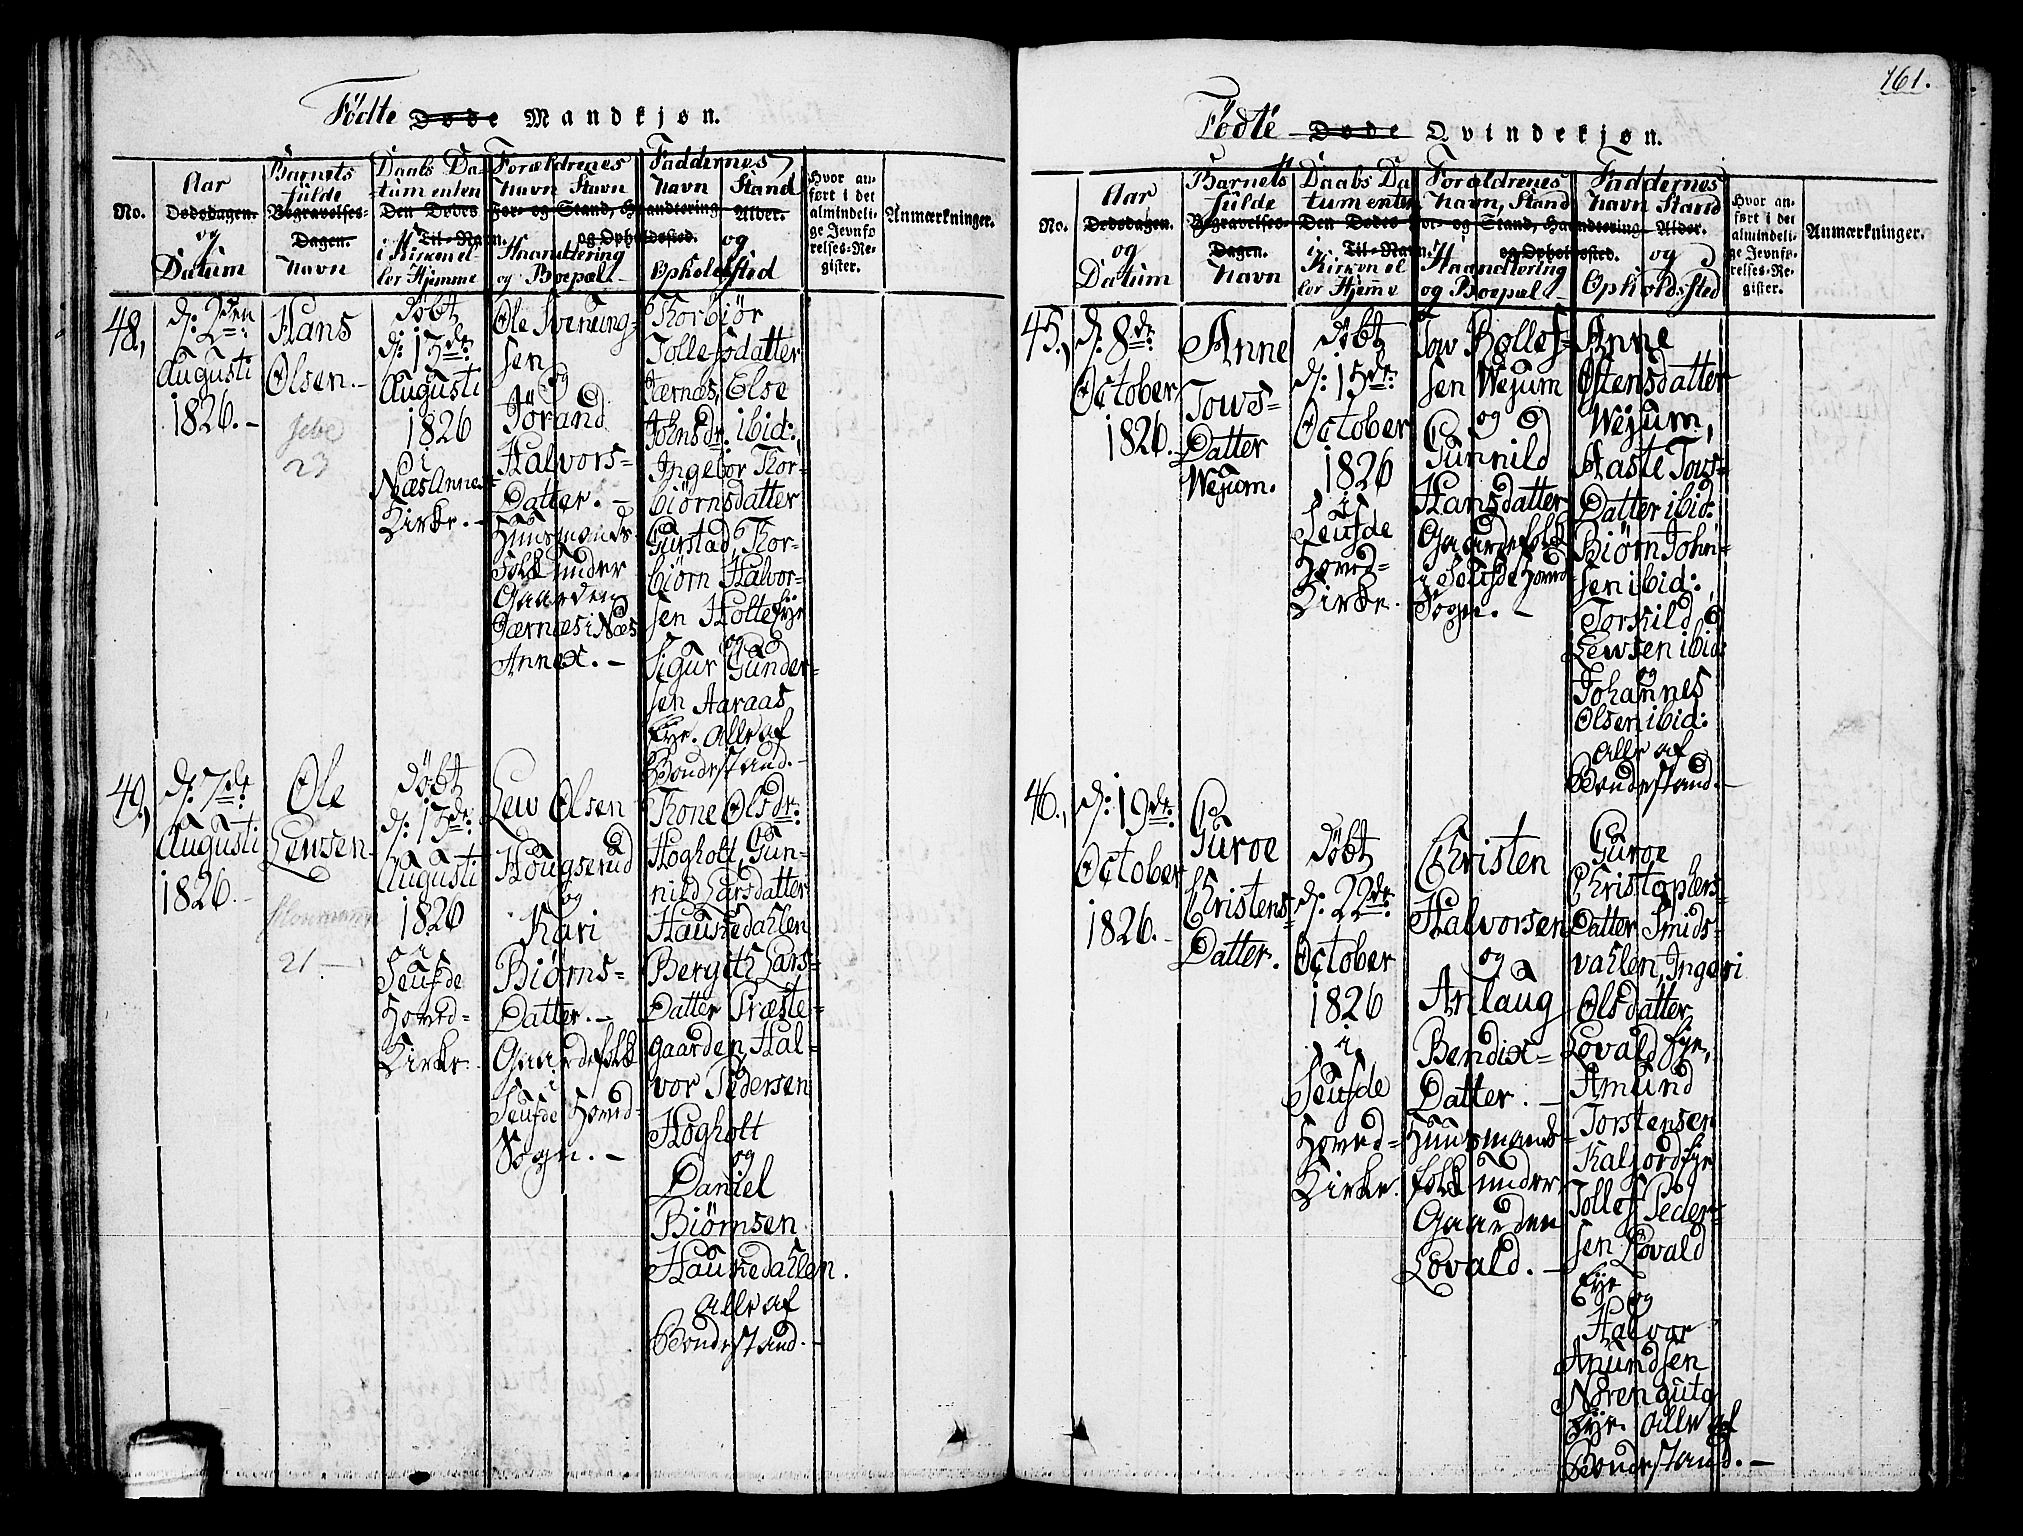 Fødte Døde Mandkjøn.
No.
Aar
Dødsdagen.
og
Datum
Barnets
fulde
Begravelses-
Dagen.
Navn
Daabs Da-
tum enten
Den Dødes
Til-Navn.
i Kirken el-
ler Hjemme
Forældrenes
Navn Stavn
For- og Stand, Haandtering
og Opholdssted.
Haandtering
og Boepæl
Faddernes
Navn Stand
Alder.
og
Opholdssted
Hvor an-
ført i det
almindeli-
ge Jevnfø-
relses-Re-
gister.
Anmærkninger.
48,
d: 2den
Augusti
1826.-
Hans
Olsen.-
23
Døbt
d: 13de
Augusti
1826
i
Næs Annex
Kirke.-
Ole Svenung-
sen
og
Jörand
Halvors-
Datter.-
Huusmands
Folk under
Gaarden
Jærnæs i Næs
Annex.-
Thorbiør
Tollefsdatter
Jærnæs, Else
Johnsdr. ibid:,
Ingebor Thor-
biørnsdatter
Gurstad, Thor-
biørn Halvor-
sen Holte Eye
og
Sigur Gunder-
sen Aaraas
Eye. Alle af
Bondestand.-
49,
d: 7de
Augusti
1826.-
Ole
Lewsen
21-
Døbt
d: 13de
Augusti
1826
i
Seufde
Hoved-
Kirke.
Lew Olsen
Hougserud
og
Kari
Biørns-
Datter.-
Gaardefolk
i
Seufde Hoved-
Sogn.-
Thone Olsdr:
Hogholt, Gun-
nild Larsdatter
Haukedahlen
Bergith Lars-
Datter Præste-
gaarden, Hal-
vor Pedersen
Hogholt
og
Daniel
Biørnsen
Haukedahlen.
Alle af
Bondestand.-
161.
Fødte Døde Qvindekjøn.
No.
Aar
Dødsdagen.
og
Datum
Barnets
fulde
Begravelses-
Dagen.
Navn
Daabs Da
tum enten
Den Dødes
Til-Navn.
i Kirken el
ler Hjemme
Forældrenes
Navn, Stand
For- og Stand, Haandtering
og Opholdssted.
Haandtering
og Boepæl
Faddernes
Navn Stand
Alder.
og
Opholdssted
Hvor an-
ført i det
almindeli-
ge Jevnfø-
relses-Re-
gister.
Anmærkninger.
45,
d: 8de
October
1826.
Anne
Tows-
Datter
Wejum.
Døbt
d: 15de
October
1826
i
Seufde
Hoved-
Kirke.
Tow Rollef-
sen Wejum
og
Gunnild
Hansdatter
Gaardefolk
i Seufde Hoved-
Sogn.-
Anne
Østensdatter
Wejum,
Aaste Tows-
Datter ibid:
Biørn John-
sen ibid:,
Torkild
Lewsen ibid:
og
Johannes
Olsen ibid:
Alle af
Bondestand.-
46.,
d: 19de
October
1826.-
Guroe
Christens-
Datter.
Døbt
d: 22de
October
1826
i
Seufde
Hoved-
Kirke.
Christen
Halvorsen
og
Anlaug
Bendix-
Datter.-
Huusmands-
folk under
Gaarden
Lovald.-
Guroe
Christophers-
Datter Smids-
vahlen, Ingeri
Olsdatter
Lovald Eye,
Amund
Torstensen
Kaljord Eye
Tollef Peder-
sen Lovald
Eye
og
Halvor
Anundsen
Norenguta
Eye. Alle af
Bondestand.-